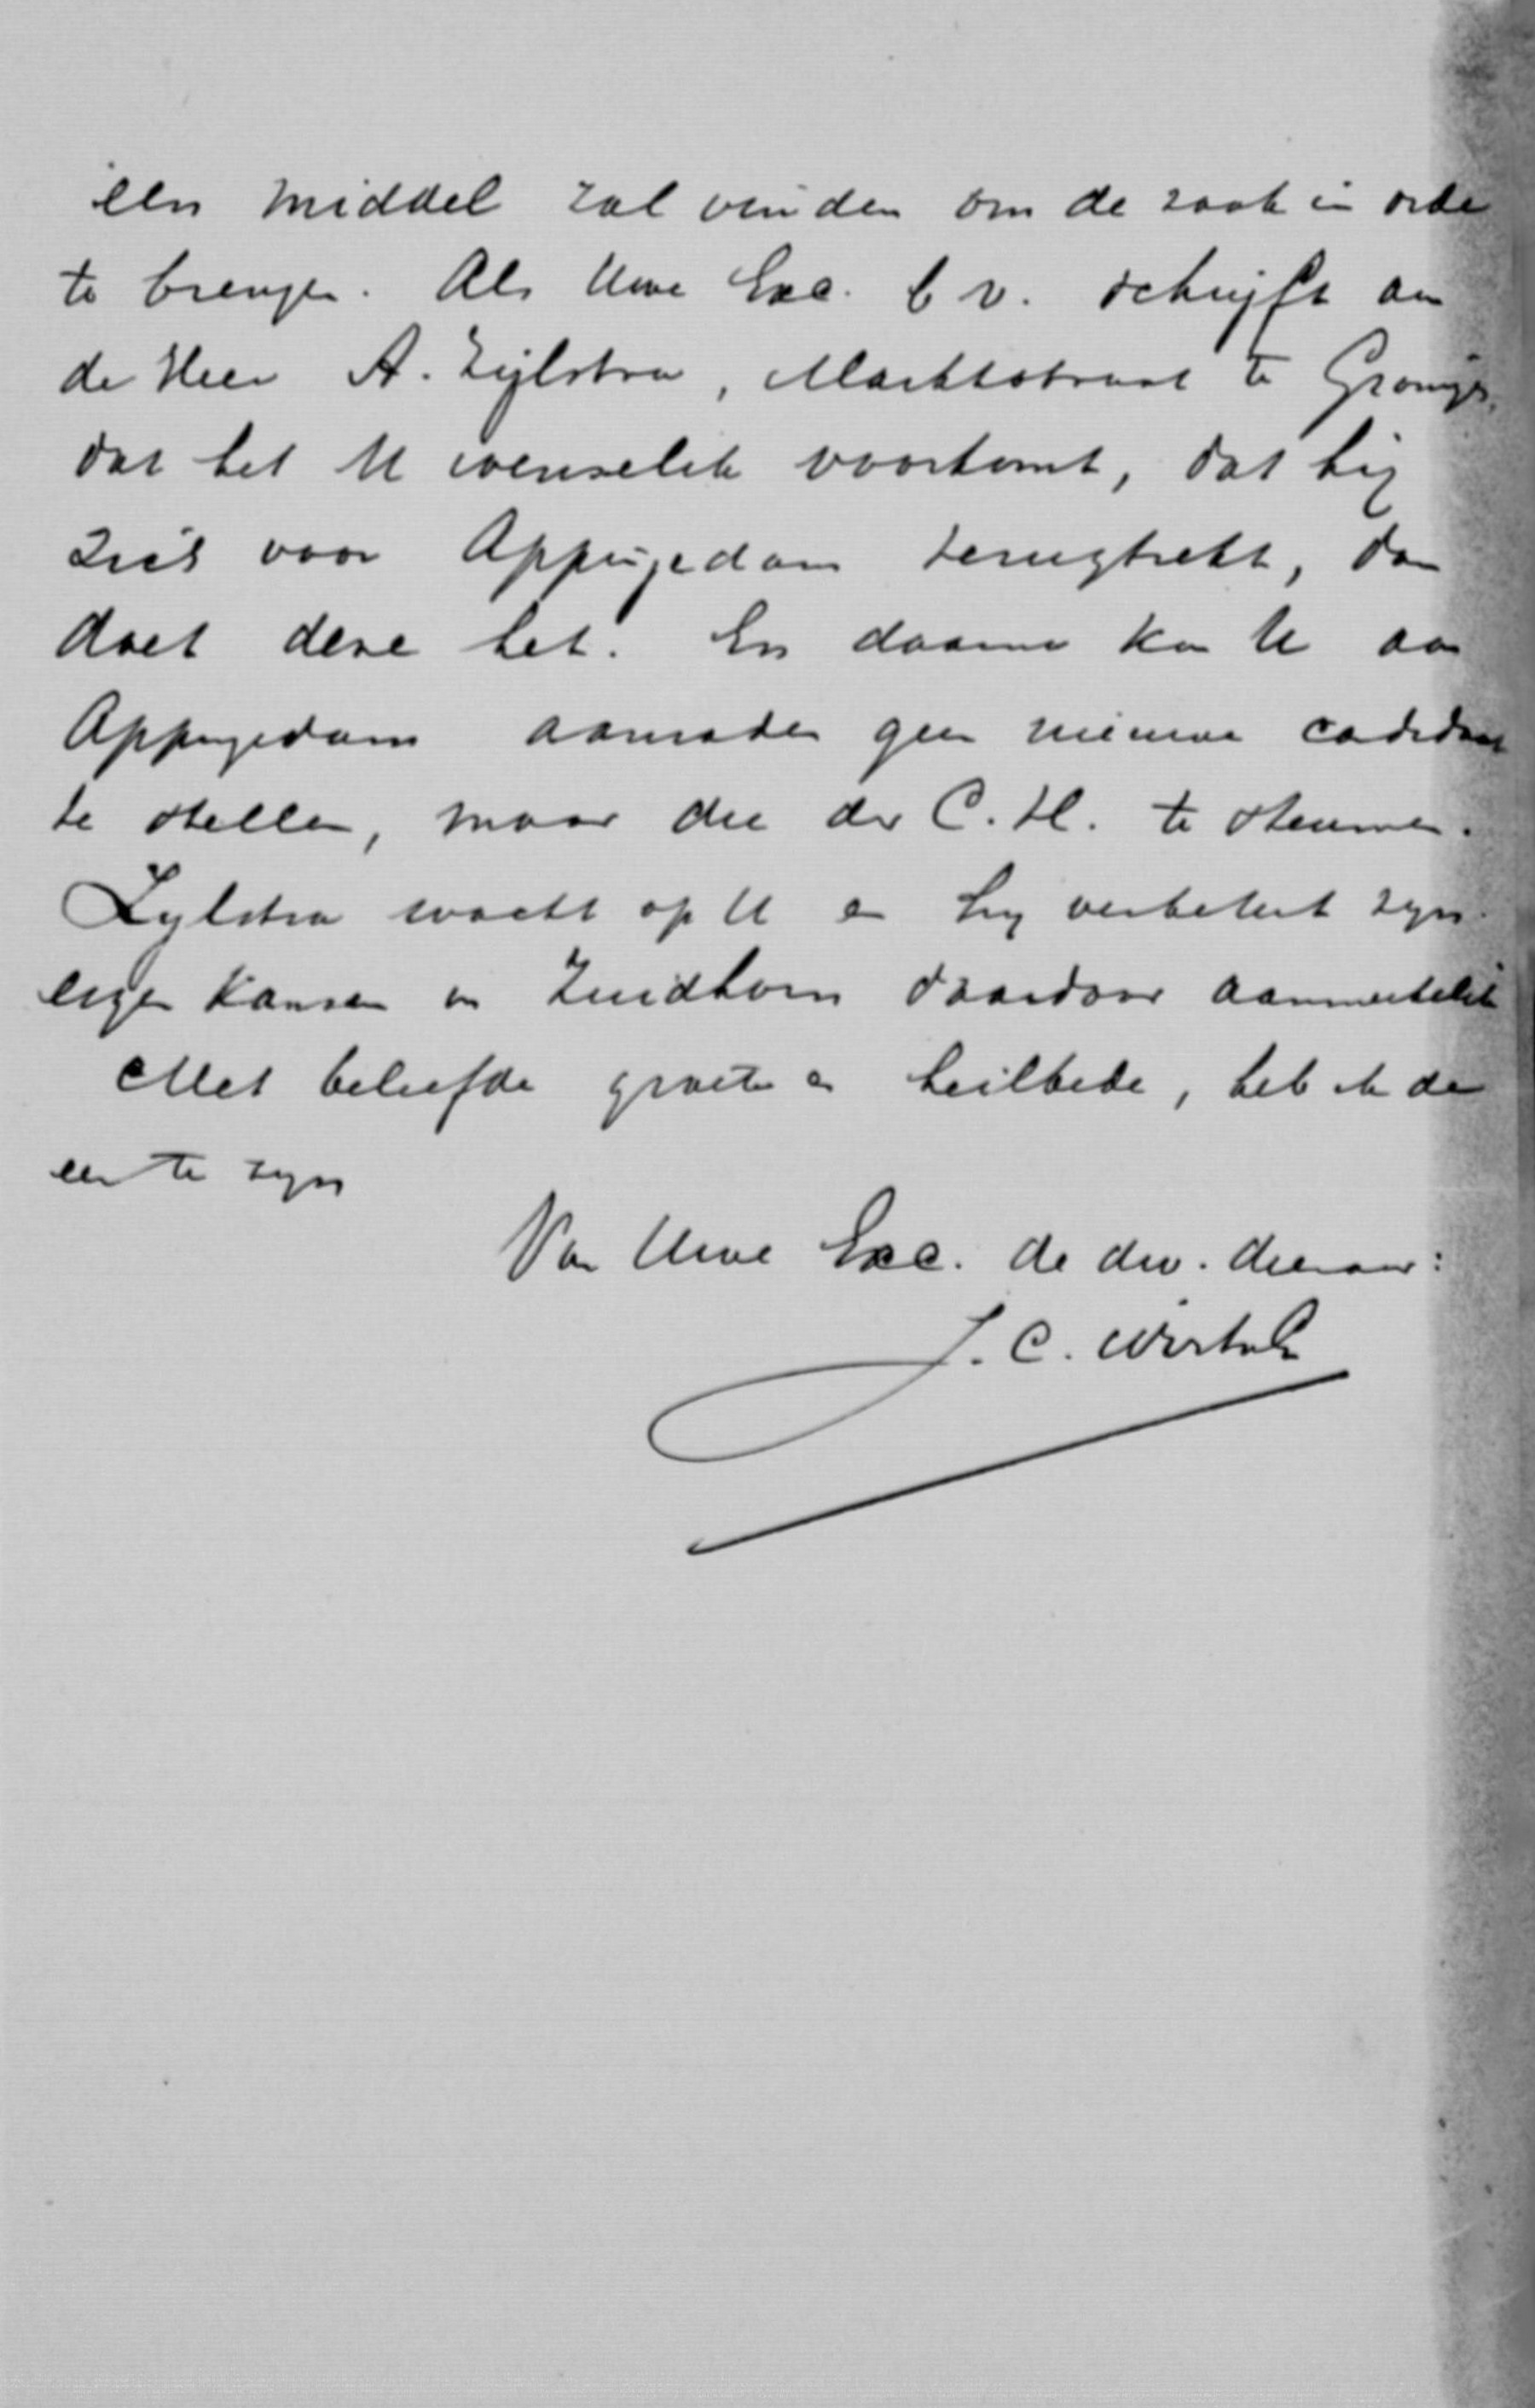 een middel zal vinden om de zaak in orde
te brengen. Als Uwe Exc. b v. schrijft aan
de Heer A. Zijlstra, Marktstraat te Groningen,
dat het U wenselik voorkomt, dat hij
zich voor Appingedam terugtrekt, dan
doet deze het. En daarna kan U aan
Appingedam aanraden geen nieuwe candidaat
te stellen, maar die der C. H. te steunen.
Zylstra wacht op U en hy verbetert zyn
eigen kansen in Zuidhorn daardoor aanmerkelik
Met beleefde groeten en heilbede, heb ik de
eer te zyn
Van Uwe Exc. de dw. dienaar:
J. C. Wirtz